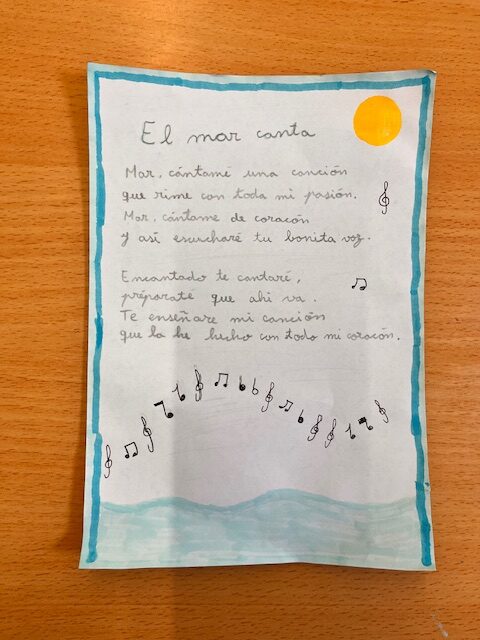 El mar canta
Mar, cántame una canción
que rime con toda mi pasión.
Mar, cántame de corazón
y así escucharé tu bonita voz.
Encantado te cantaré,
préparate que ahi va.
Te enseñare mi canción
que la he hecho con todo mi corazón.